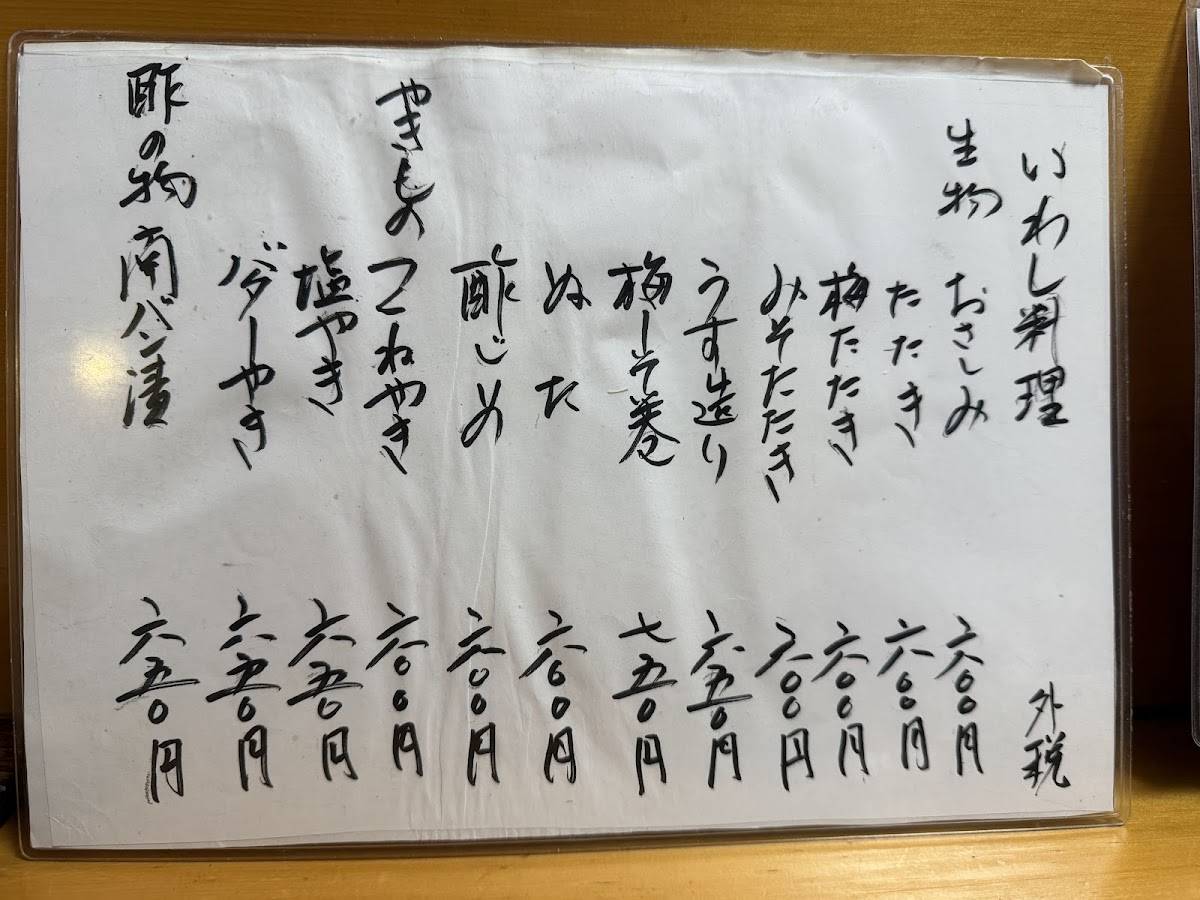 いわし料理 外税
生物 おさしみ 六〇〇円
たたき 六〇〇円
梅たたき 六〇〇円
みそたたき 六〇〇円
うす造り 六五〇円
梅しそ巻 七五〇円
ぬた 六〇〇円
酢じめ 六〇〇円
やきもの つくねやき 六〇〇円
塩やき 六五〇円
バターやき 六五〇円
酢の物 南バン漬 六五〇円